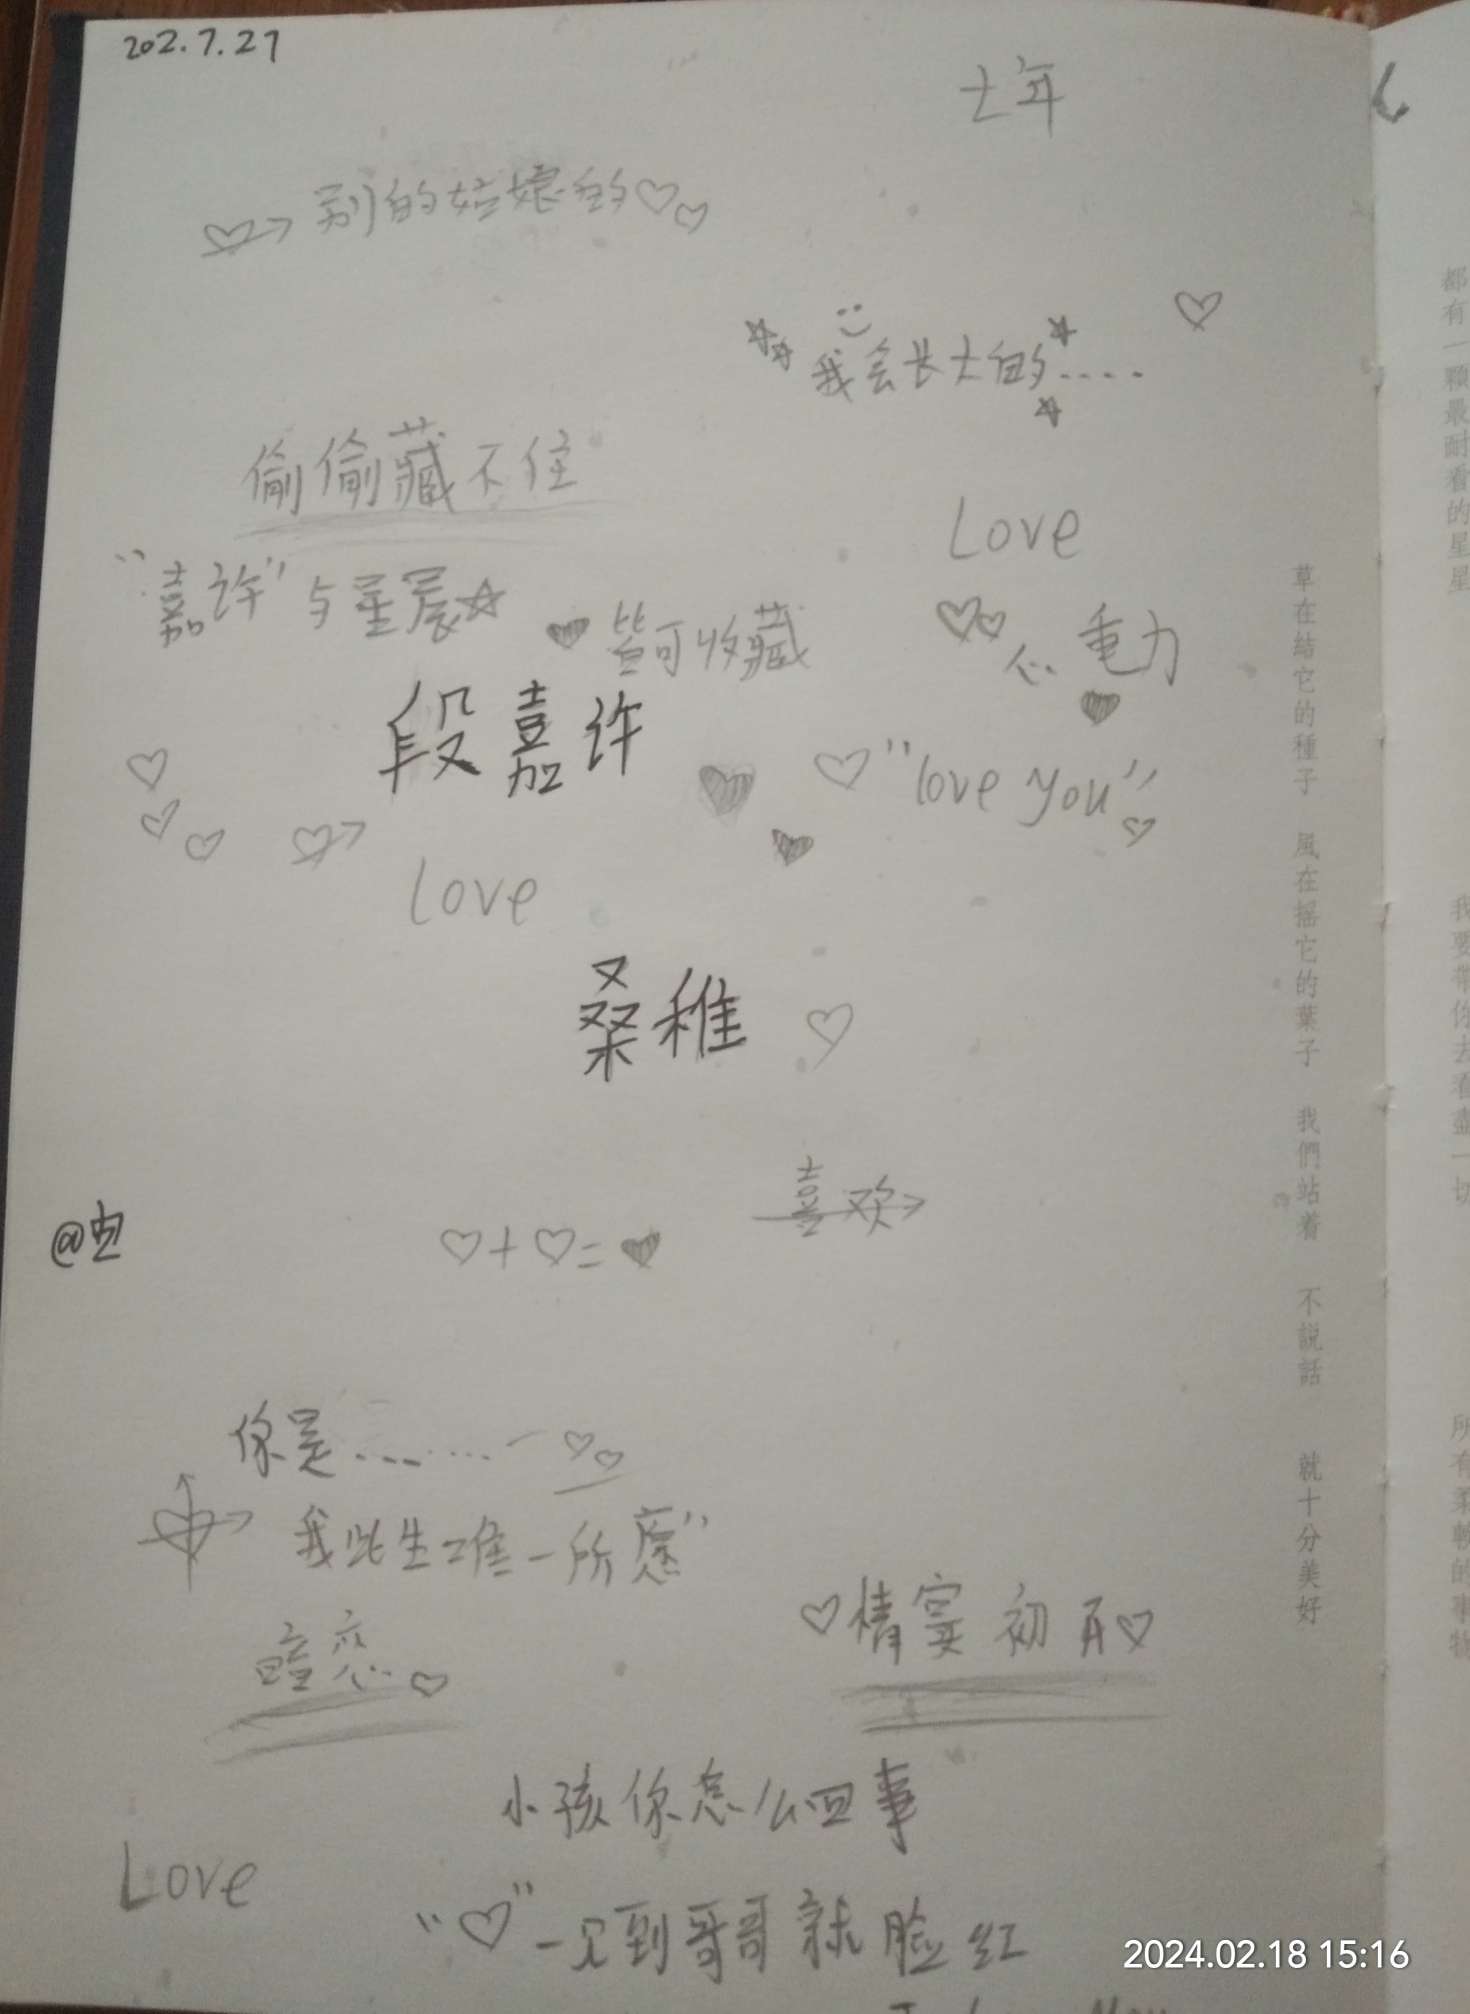 202.7.27
七年
别的姑娘的
我会长大的....
偷偷藏不住
Love
"嘉许"与星辰
皆可收藏
心重力
段嘉许
"love you"
Love
桑稚
喜欢
@
♡+♡=♥
你是........
我此生唯一所愿"
情窦初开
暗恋
小孩你怎么回事
Love
"♡"一见到哥哥就脸红
草在結它的種子 風在摇它的葉子 我們站着 不説話 就十分美好
都有一顆最耐看的星星
我要帶你去看盡一切
所有柔軟的事物
2024.02.18 15:16